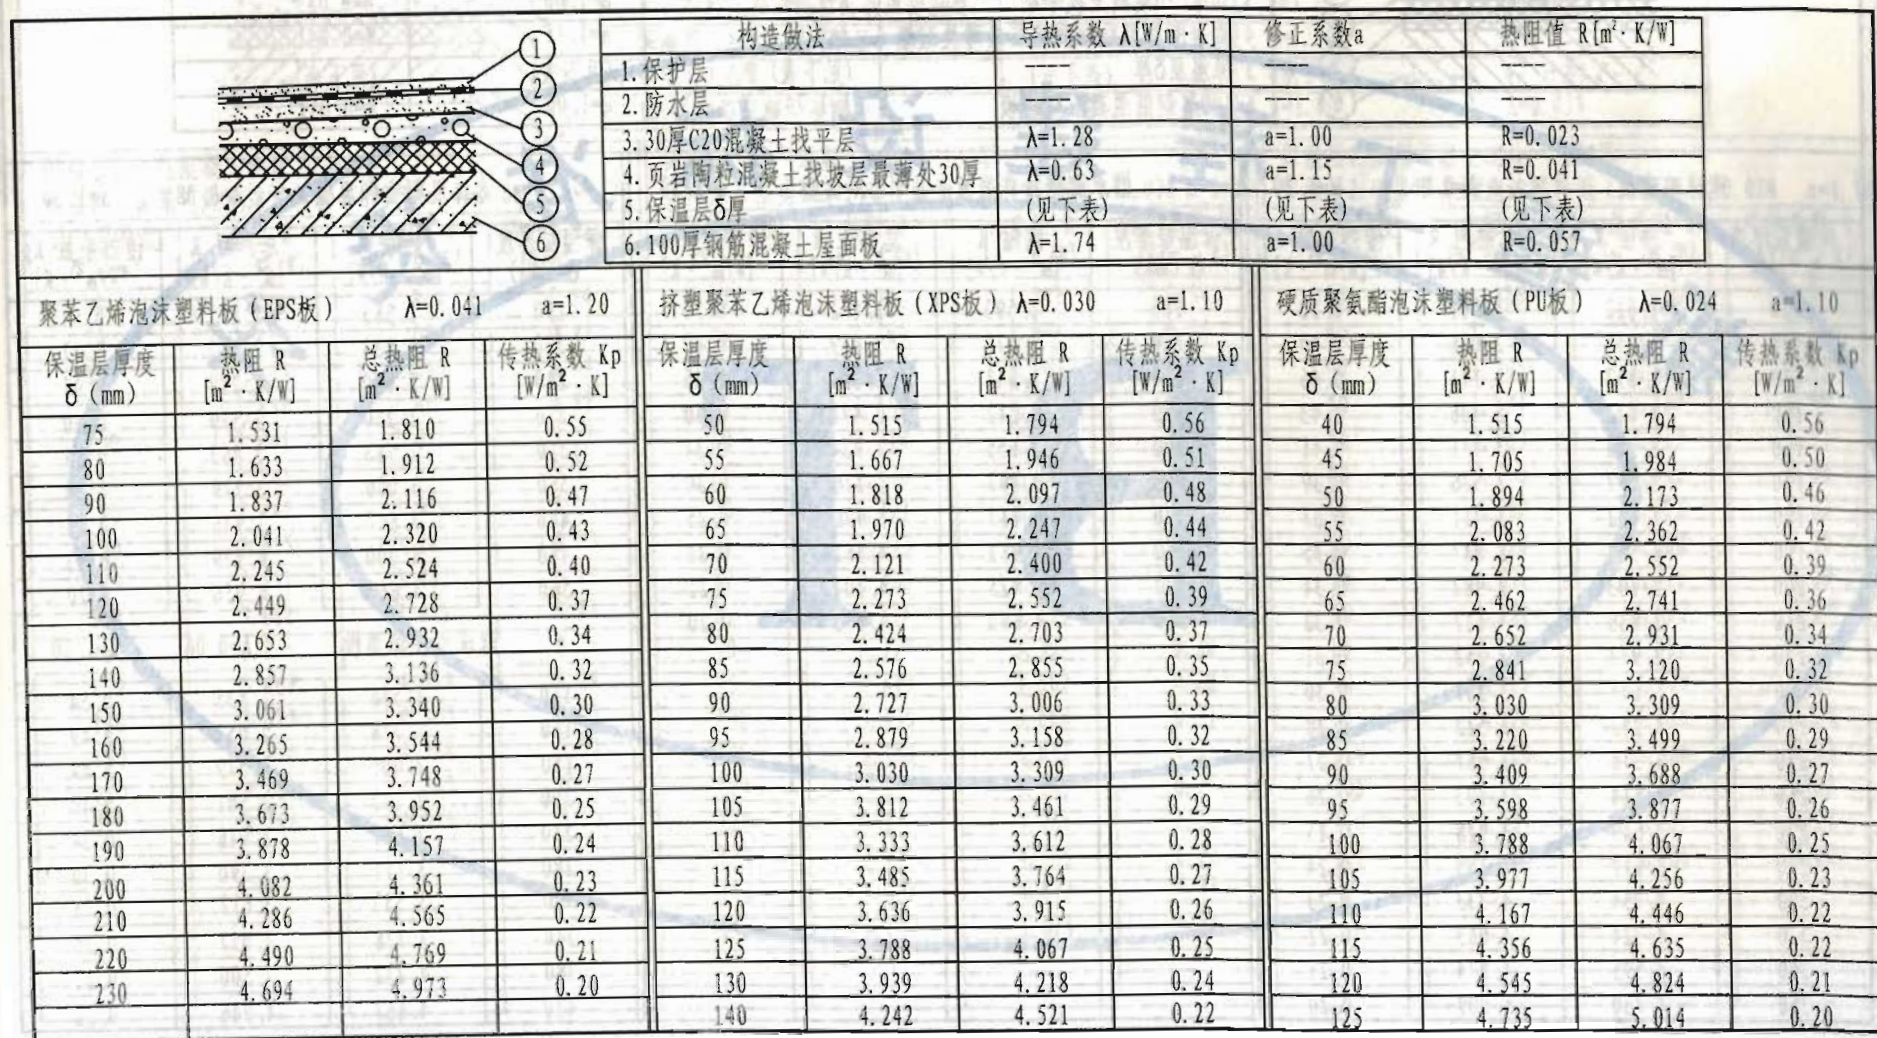 构造做法 导热系数 λ[W/m·K] 修正系数a 热阻值 R[m²·K/W]
1.保护层 ---- ---- ----
2.防水层 ---- ---- ----
3.30厚C20混凝土找平层 λ=1.28 a=1.00 R=0.023
4.页岩陶粒混凝土找坡层最薄处30厚 λ=0.63 a=1.15 R=0.041
5.保温层δ厚 (见下表) (见下表) (见下表)
6.100厚钢筋混凝土屋面板 λ=1.74 a=1.00 R=0.057
1
2
3
4
5
6
聚苯乙烯泡沫塑料板(EPS板) λ=0.041 a=1.20
保温层厚度 δ(mm) 热阻 R [m²·K/W] 总热阻 R [m²·K/W] 传热系数 Kp [W/m²·K]
75 1.531 1.810 0.55
80 1.633 1.912 0.52
90 1.837 2.116 0.47
100 2.041 2.320 0.43
110 2.245 2.524 0.40
120 2.449 2.728 0.37
130 2.653 2.932 0.34
140 2.857 3.136 0.32
150 3.061 3.340 0.30
160 3.265 3.544 0.28
170 3.469 3.748 0.27
180 3.673 3.952 0.25
190 3.878 4.157 0.24
200 4.082 4.361 0.23
210 4.286 4.565 0.22
220 4.490 4.769 0.21
230 4.694 4.973 0.20
挤塑聚苯乙烯泡沫塑料板(XPS板) λ=0.030 a=1.10
保温层厚度 δ(mm) 热阻 R [m²·K/W] 总热阻 R [m²·K/W] 传热系数 Kp [W/m²·K]
50 1.515 1.794 0.56
55 1.667 1.946 0.51
60 1.818 2.097 0.48
65 1.970 2.247 0.44
70 2.121 2.400 0.42
75 2.273 2.552 0.39
80 2.424 2.703 0.37
85 2.576 2.855 0.35
90 2.727 3.006 0.33
95 2.879 3.158 0.32
100 3.030 3.309 0.30
105 3.812 3.461 0.29
110 3.333 3.612 0.28
115 3.485 3.764 0.27
120 3.636 3.915 0.26
125 3.788 4.067 0.25
130 3.939 4.218 0.24
140 4.242 4.521 0.22
硬质聚氨酯泡沫塑料板(PU板) λ=0.024 a=1.10
保温层厚度 δ(mm) 热阻 R [m²·K/W] 总热阻 R [m²·K/W] 传热系数 Kp [W/m²·K]
40 1.515 1.794 0.56
45 1.705 1.984 0.50
50 1.894 2.173 0.46
55 2.083 2.362 0.42
60 2.273 2.552 0.39
65 2.462 2.741 0.36
70 2.652 2.931 0.34
75 2.841 3.120 0.32
80 3.030 3.309 0.30
85 3.220 3.499 0.29
90 3.409 3.688 0.27
95 3.598 3.877 0.26
100 3.788 4.067 0.25
105 3.977 4.256 0.23
110 4.167 4.446 0.22
115 4.356 4.635 0.22
120 4.545 4.824 0.21
125 4.735 5.014 0.20